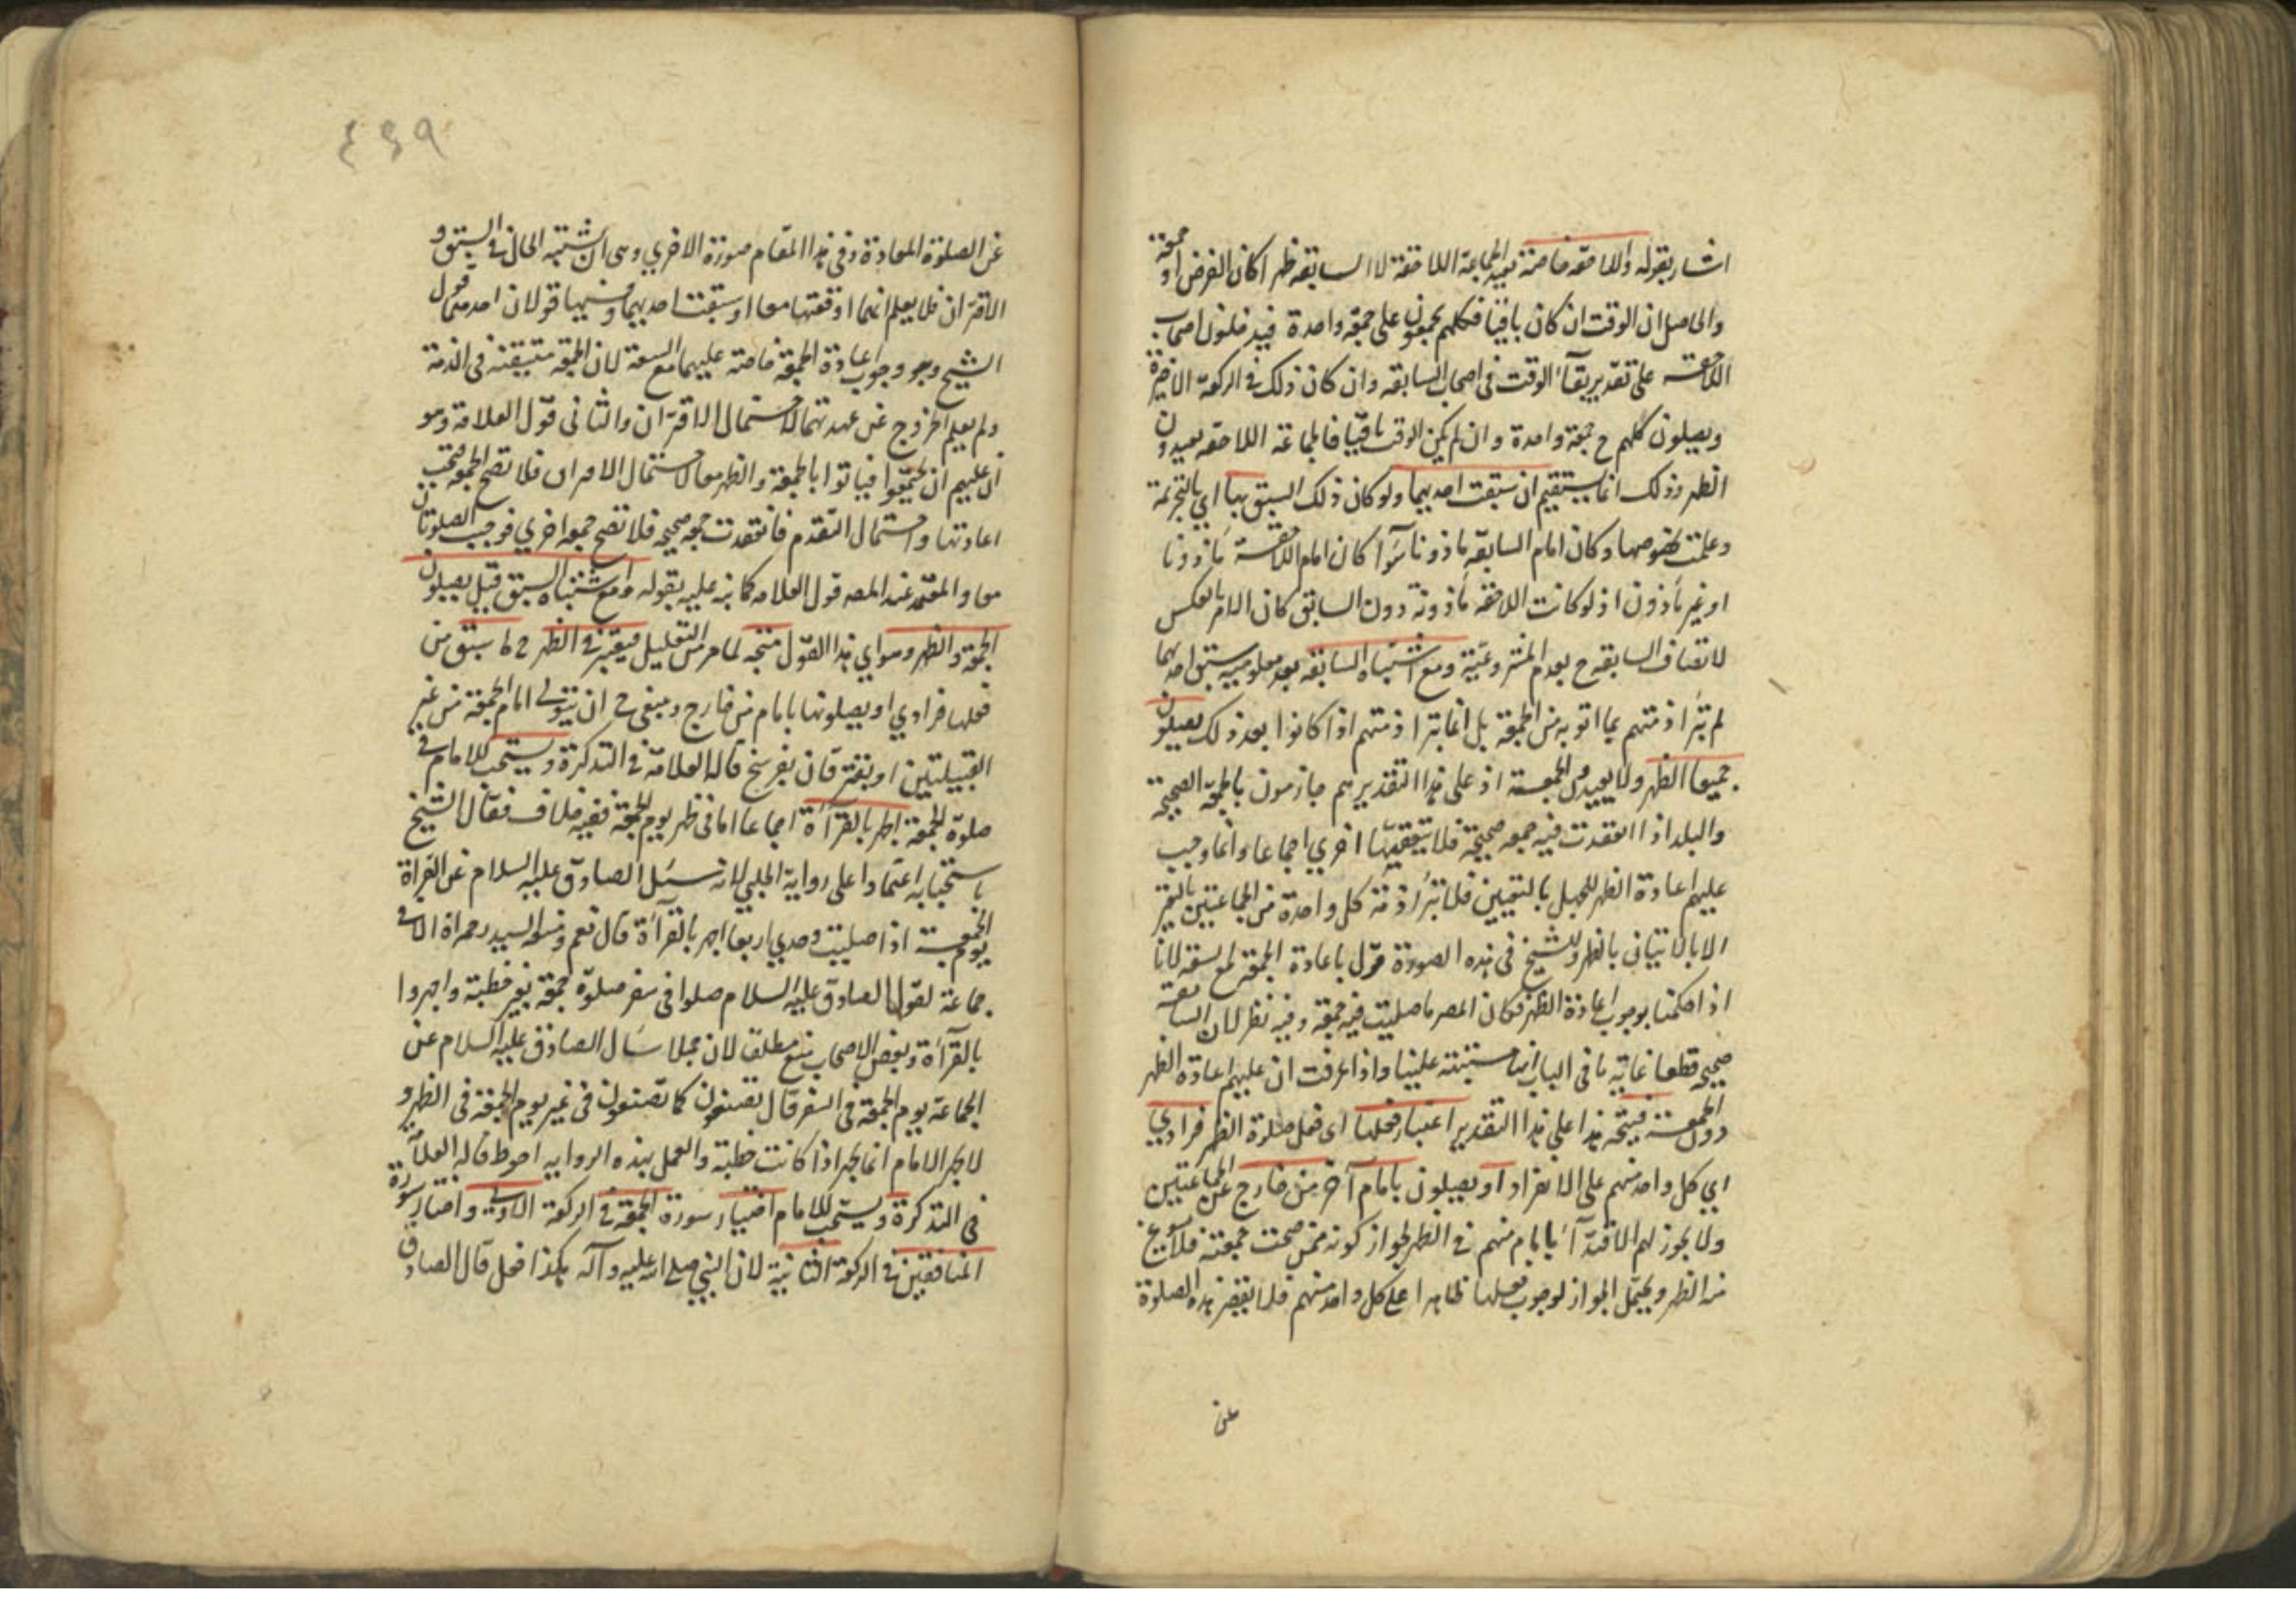 اشار بقوله واللاحقه خاصة يعيد الجماعة اللاحقة لا السابقة ظهرا كان الفرض او جمعة
والحاصل ان الوقت ان كان باقيا فكلهم يجمعون على جمعة واحدة فيدخلون اصحاب
اللاحقة على تقدير بقآء الوقت فى اصحاب السابقه وان كان ذلك في الركعة الاخيرة
ويصلون كلهم ح جمعة واحدة وان لم يكن الوقت باقيا فالجماعة اللاحقه يعيدون
الظهر وذلك انما يستقيم ان سبقت احديهما ولو كان ذلك السبق بها اي بالتحريمة
وعلمت بخصوصها وكان امام السابقة ماذونا سوآء كان امام اللاحقة مأذونا
او غير مأذون اذ لو كانت اللاحقه مأذونة دون السابق كان الامر بالعكس
لاتصاف السابقه ح بعدم المشروعية ومع اشتباه السابقه بعد معلومية سبق احديهما
لم تبرأ ذمتهم بما اتو به من الجمعة بل انما تبرا ذمتهم اذا كانوا بعد ذلك يصلون
جميعا الظهر ولا يعيدون الجمعة اذ على هذا التقدير هم جازمون بالجمعة الصحيحة
والبلد اذا انعقدت فيه جمعه صحيحة فلا يتعقبها اخري اجماعا وانما وجب
عليهم اعادة الظهر للجهل بالتعيين فلا تبرأ ذمة كل واحدة من الجماعتين باليقين
الا بالاتيان بالظهر وللشيخ فى هذه الصورة قول باعادة الجمعة مع السعة لانا
اذا حكمنا بوجوب اعادة الظهر فكان المصر ما صليت فيه جمعة وفيه نظر لان السابقة
صحيحه قطعا غاية ما فى الباب انها مشتبهة علينا واذا عرفت ان عليهم اعادة الظهر
دون الجمعة فيتجه هذا على هذا التقدير اعتبار فعلها اى فعل صلوة الظهر فرادي
اي كل واحد منهم على الانفراد او يصلون بامام آخر من خارج عن الجماعتين
ولا يجوز لهم الاقتدآء بامام منهم في الظهر لجواز كونه ممن صحت جمعته فلا يسوغ
منه الظهر ويحتمل الجواز لوجوب فعلها ظاهرا على كل واحد منهم فلا يقصر هذه الصلوة
عن
٤٤٩
عن الصلوة المعادة وفى هذا المقام صورة الاخري وهى ان يشتبه الحال في السبق و
الاقتران فلا يعلم انهما اوقعتها معا او سبقت احديهما وفيها قولان احدهما قول
الشيخ وهو وجوب اعادة الجمعة خاصة عليهما مع السعة لان الجمعة متيقنة فى الذمة
ولم يعلم الخروج عن عهدتها لاحتمال الاقتران والثانى قول العلامة وهو
ان عليهم ان يجتمعوا فياتوا بالجمعة والظهر معا لاحتمال الامران فلا تصح الجمعة فتجب
اعادتها واحتمال التقدم فانعقدت جمعه صحيحه فلا تصح جمعه اخري فوجب الصلوتان
معا والمعتمد عند المصه قول العلامه كما نبه عليه بقوله ومع اشتباه السبق قيل يصلون
الجمعة والظهر وهو اي هذا القول متجه لما مر من التعليل فيعتبر في الظهر ح ما سبق من
فعلها فرادي او يصلونها بامام من خارج وينبغى ح ان يتولى امام الجمعة من غير
القبيلتين او يفترقان بفرسخ قاله العلامة في التذكرة ويستحب للامام في
صلوة الجمعة الجهر بالقرآءة اجماعا اما فى ظهر يوم الجمعة ففيه خلاف فقال الشيخ
باستحبابه اعتمادا على رواية الحلبى لانه سئل الصادق عليه السلام عن القراة
يوم الجمعة اذا صليت وحدي اربعا اجهر بالقرآءة قال نعم ومنعه السيد رحمه الله الا في
جماعة لقول الصادق عليه السلام صلوا فى سفر صلوة جمعة بغير خطبة واجهروا
بالقرآءة وبعض الاصحاب منع مطلقا لان جميلا سأل الصادق عليه السلام عن
الجماعة يوم الجمعة فى السفر قال يصنعون كما يصنعون فى غير يوم الجمعة فى الظهر و
لا يجهر الامام انما يجهر اذا كانت خطبة والعمل بهذه الروايه احوط قاله العلامة
فى التذكرة ويستحب للامام اختيار سورة الجمعة في الركعة الاولى واختيار سورة
المنافقين في الركعة الثانية لان النبي صلى الله عليه وآله هكذا فعل قال الصادق